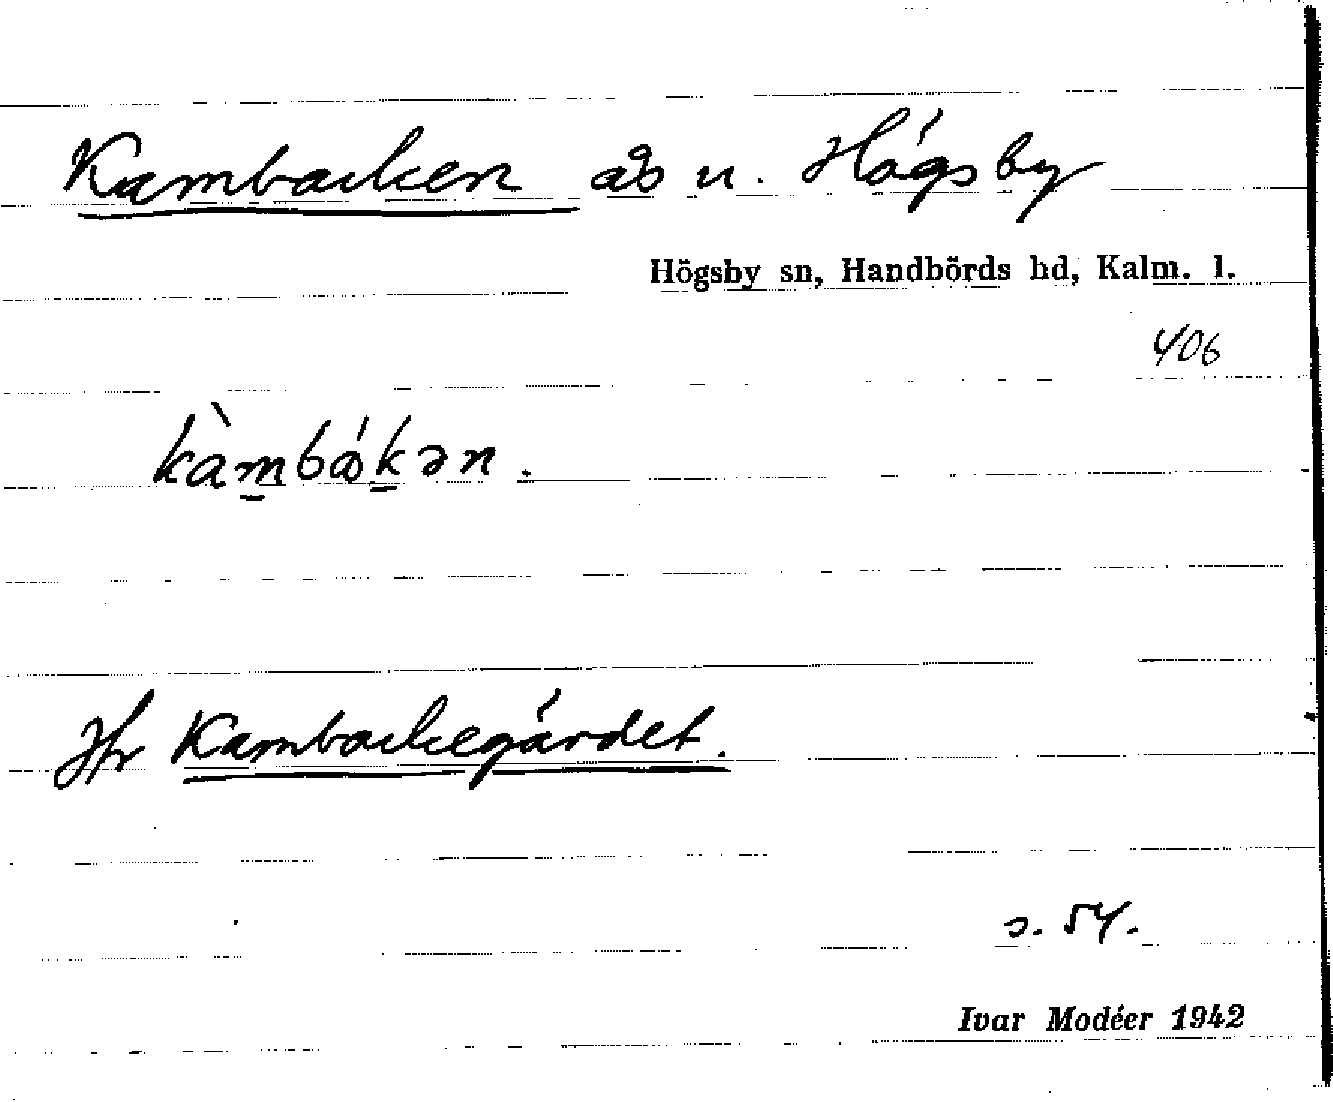 Kambacken ås n. Högsby
Högsby sn, Handbörds hd, Kalm. l.
406
kàm̱báḵən.
Jfr Kambackegärdet.
s. 54.
Ivar Modéer 1942